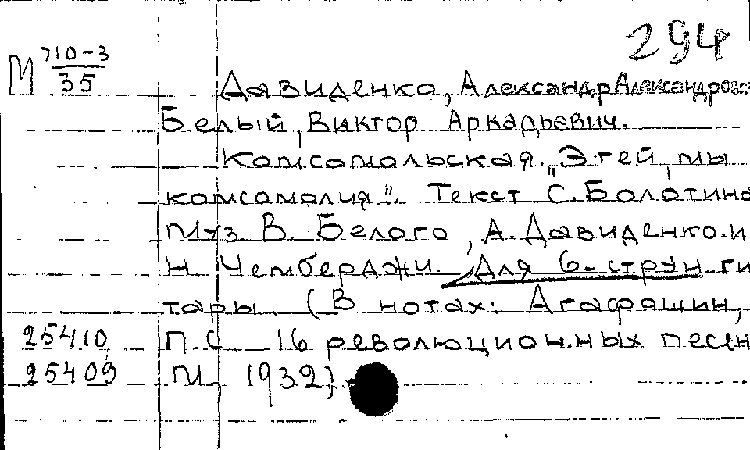 294
М 710-3
35
Давиденко, Александр Александрович
Белый, Виктор Аркадьевич.
Комсомольская. "Эгей, мы
комсомолия". Текст С. Болотина
Муз В. Белого, А. Давиденко и
Н. Чемберджи. Для 6-струн ги
тары (В нотах: Агафошин,
25410 П. С 16 революционных песен
25409 М, 1932)